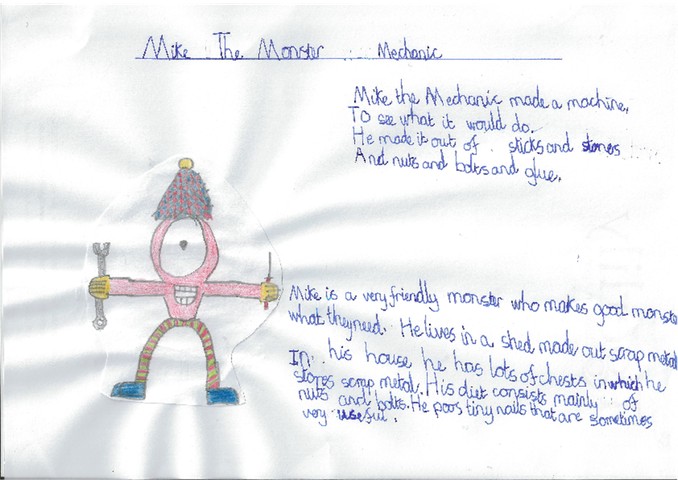 Mike The Monster Mechanic
Mike the Mechanic made a machine,
To see what it would do.
He made it out of sticks and stones
And nuts and bolts and glue.
Mike is a very friendly monster who makes good monste
what they need. He lives in a shed made out scrap metal
In his house he has lots of chests in which he
stores scrap metal. His diet consists mainly of
nuts and bolts. He poos tiny nails that are sometimes
very useful.